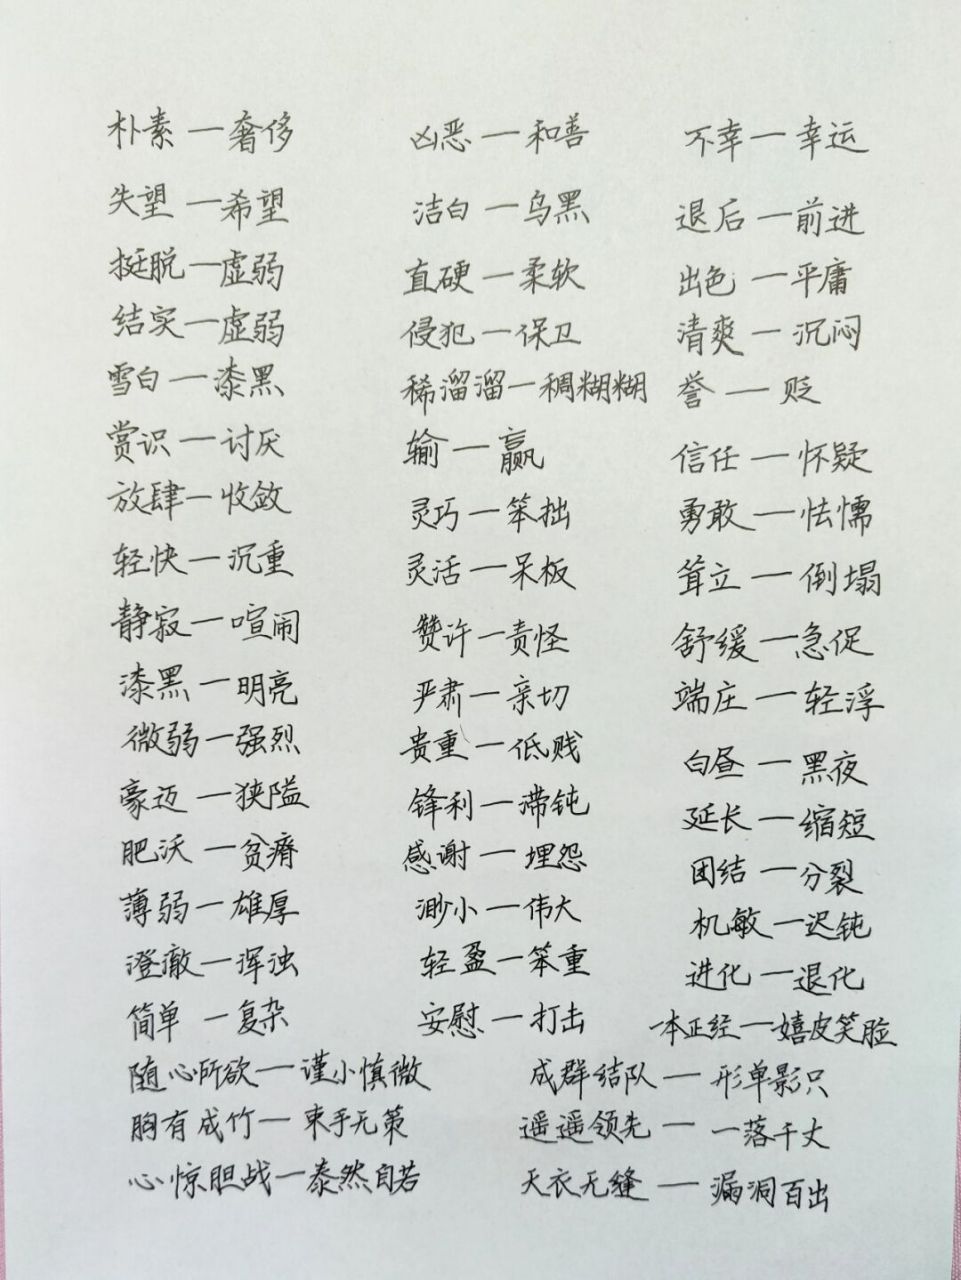 朴素—奢侈 凶恶—和善 不幸—幸运
失望—希望 洁白—乌黑 退后—前进
挺脱—虚弱 直硬—柔软 出色—平庸
结实—虚弱 侵犯—保卫 清爽—沉闷
雪白—漆黑 稀溜溜—稠糊糊 誉—贬
赏识—讨厌 输—赢 信任—怀疑
放肆—收敛 灵巧—笨拙 勇敢—怯懦
轻快—沉重 灵活—呆板 耸立—倒塌
静寂—喧闹 赞许—责怪 舒缓—急促
漆黑—明亮 严肃—亲切 端庄—轻浮
微弱—强烈 贵重—低贱 白昼—黑夜
豪迈—狭隘 锋利—滞钝 延长—缩短
肥沃—贫瘠 感谢—埋怨 团结—分裂
薄弱—雄厚 渺小—伟大 机敏—迟钝
澄澈—浑浊 轻盈—笨重 进化—退化
简单—复杂 安慰—打击 一本正经—嬉皮笑脸
随心所欲—谨小慎微 成群结队—形单影只
胸有成竹—束手无策 遥遥领先—一落千丈
心惊胆战—泰然自若 天衣无缝—漏洞百出